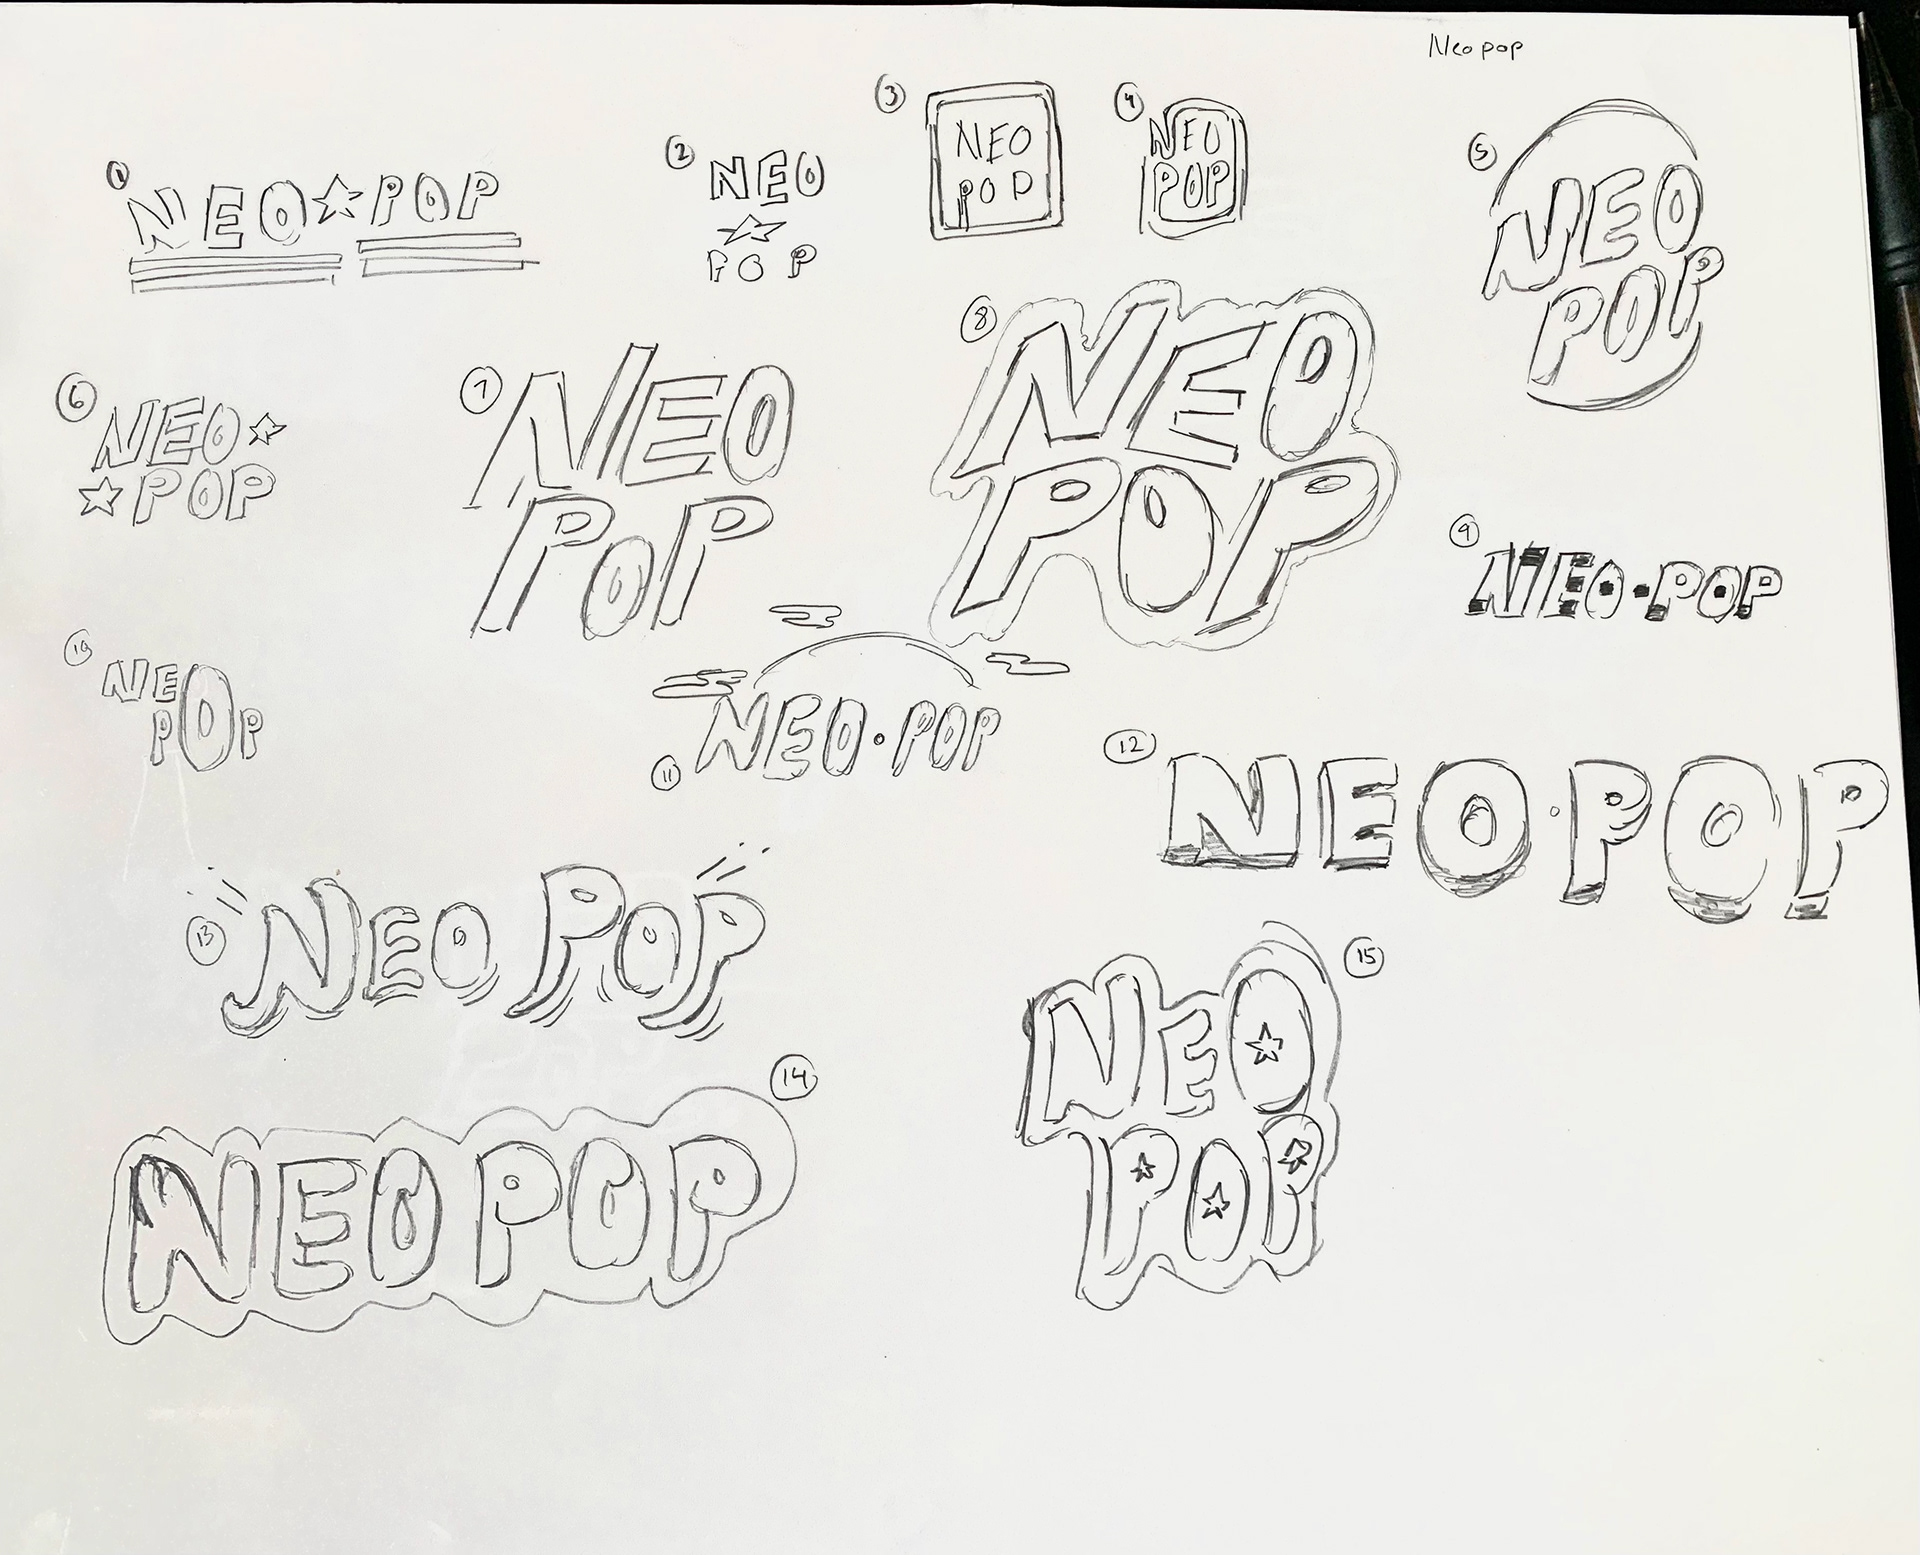 Neo pop
1
NEO☆POP
2
NEO
☆
POP
3
NEO
POP
4
NEO
POP
5
NEO
POP
6
NEO☆
☆POP
7
NEO
POP
8
NEO
POP
9
NEO·POP
10
NE
POP
11
NEO·POP
12
NEO·POP
13
NEO POP
14
NEO POP
15
NEO
POP